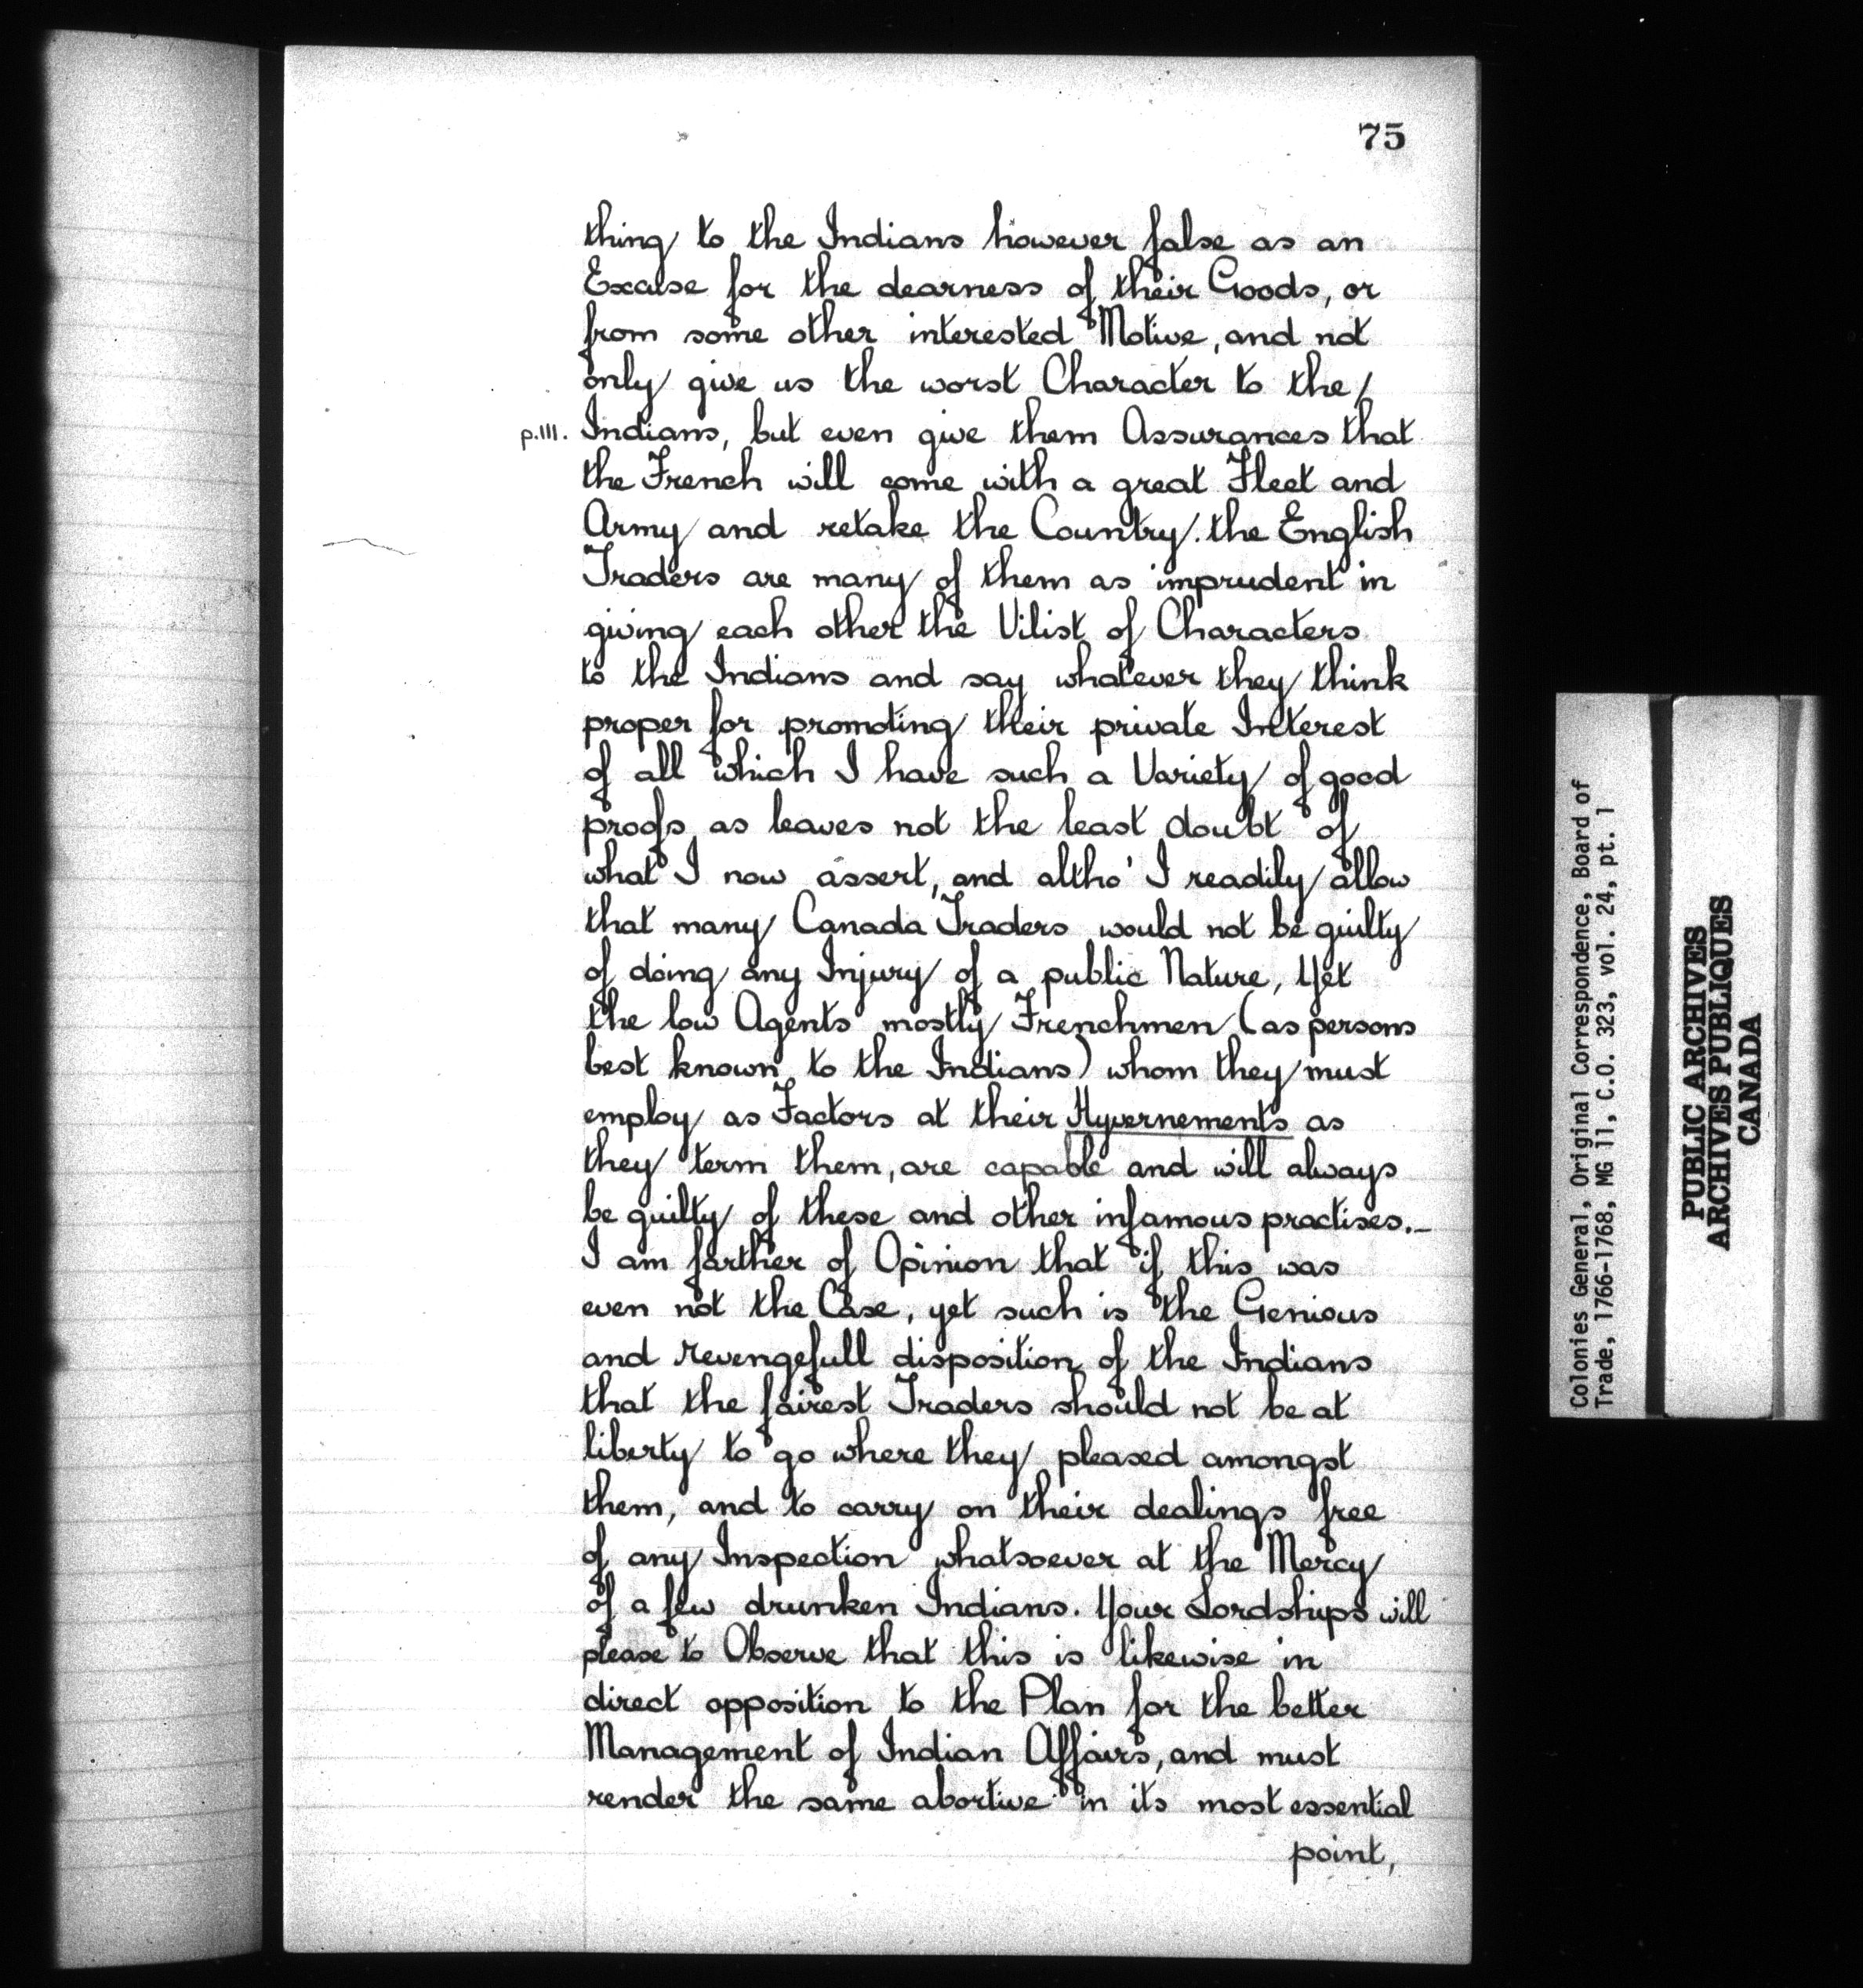 75
thing to the Indians however false as an
Excuse for the dearness of their Goods, or
from some other interested Motive, and not
only give us the worst Character to the /
p.111. Indians, but even give them Assurances that
the French will come with a great Fleet and
Army and retake the Country. the English
Traders are many of them as imprudent in
giving each other the Vilist of Characters
to the Indians and say whatever they think
proper for promoting their private Interest
of all which I have such a Variety of good
proofs as leaves not the least doubt of
what I now assert, and altho' I readily allow
that many Canada Traders would not be guilty
of doing any Injury of a public Nature, Yet
the low Agents mostly Frenchmen (as persons
best known to the Indians) whom they must
employ as Factors at their Hyvernements as
they term them, are capable and will always
be guilty of these and other infamous practises._
I am farther of Opinion that if this was
even not the Case, yet such is the Genious
and revengefull disposition of the Indians
that the fairest Traders should not be at
liberty to go where they pleased amongst
them, and to carry on their dealings free
of any Inspection whatsoever at the Mercy
of a few drunken Indians. Your Lordships will
please to Observe that this is likewise in
direct opposition to the Plan for the better
Management of Indian Affairs, and must
render the same abortive in its most essential
point,
Colonies General, Original Correspondence, Board of
Trade, 1766-1768, MG 11, C.O. 323, vol. 24, pt. 1
PUBLIC ARCHIVES
ARCHIVES PUBLIQUES
CANADA